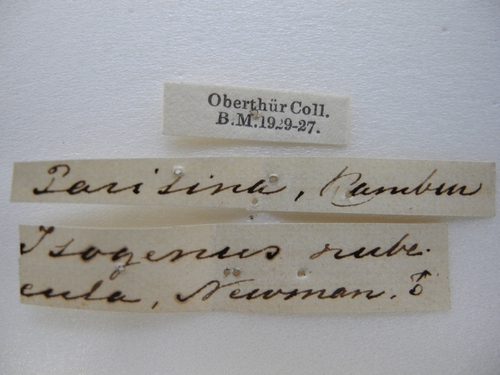 Oberthür Coll.
B.M.1929-27.
Parisina, Rambur
Isogenus rube-
cula, Newman. ♂